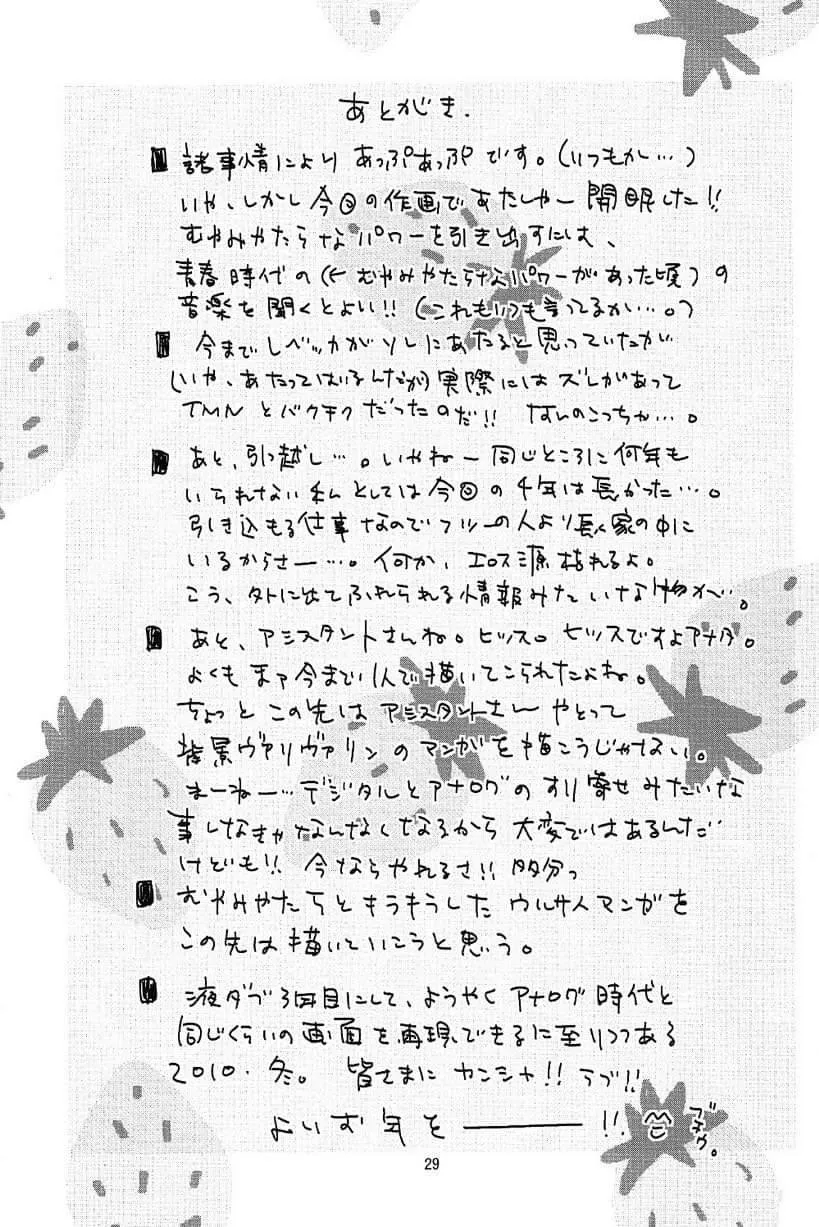 あとがき.
諸事情により あっぷあっぷです。(いつもか…)
いや、しかし今回の作画であたしゃー開眼した!!
むやみやたらなパワーを引き出すには、
青春時代の(←むやみやたらなパワーがあった頃)の
音楽を聞くとよい!!(これもいつも言ってるか…。)
今までレベッカがソレにあたると思っていたが
(いや、あたってはいるんだが)実際にはズレがあって
TMNとバクチクだったのだ!! なんのこっちゃ…。
あと、引っ越し…。いやねー同じところに何年も
いられない私としては今回の4年は長かった…。
引き込もる仕事なのでフツーの人より長く家の中に
いるからさー…。何か、エロス源枯れるよ。
こう、外に出てふれられる情報みたいな物が…。
あと、アシスタントさんね。ヒッス。ヒッスですよアナタ。
よくもまァ今まで1人で描いてこられたよね。
ちょっとこの先はアシスタントさんやとって
背景ヴァリヴァリンのマンガを描こうじゃない。
まーねー…デジタルとアナログのすり寄せみたいな
事しなきゃなんなくなるから大変ではあるんだ
けども!! 今ならやれるさ!! 多分っ
むやみやたらとキラキラしたウルサイマンガを
この先は描いていこうと思う。
液タブ3年目にして、ようやくアナログ時代と
同じくらいの画面を再現できるに至りつつある
2010.冬。 皆さまにカンシャ!! ラブ!!
よいお年を―――!!
29